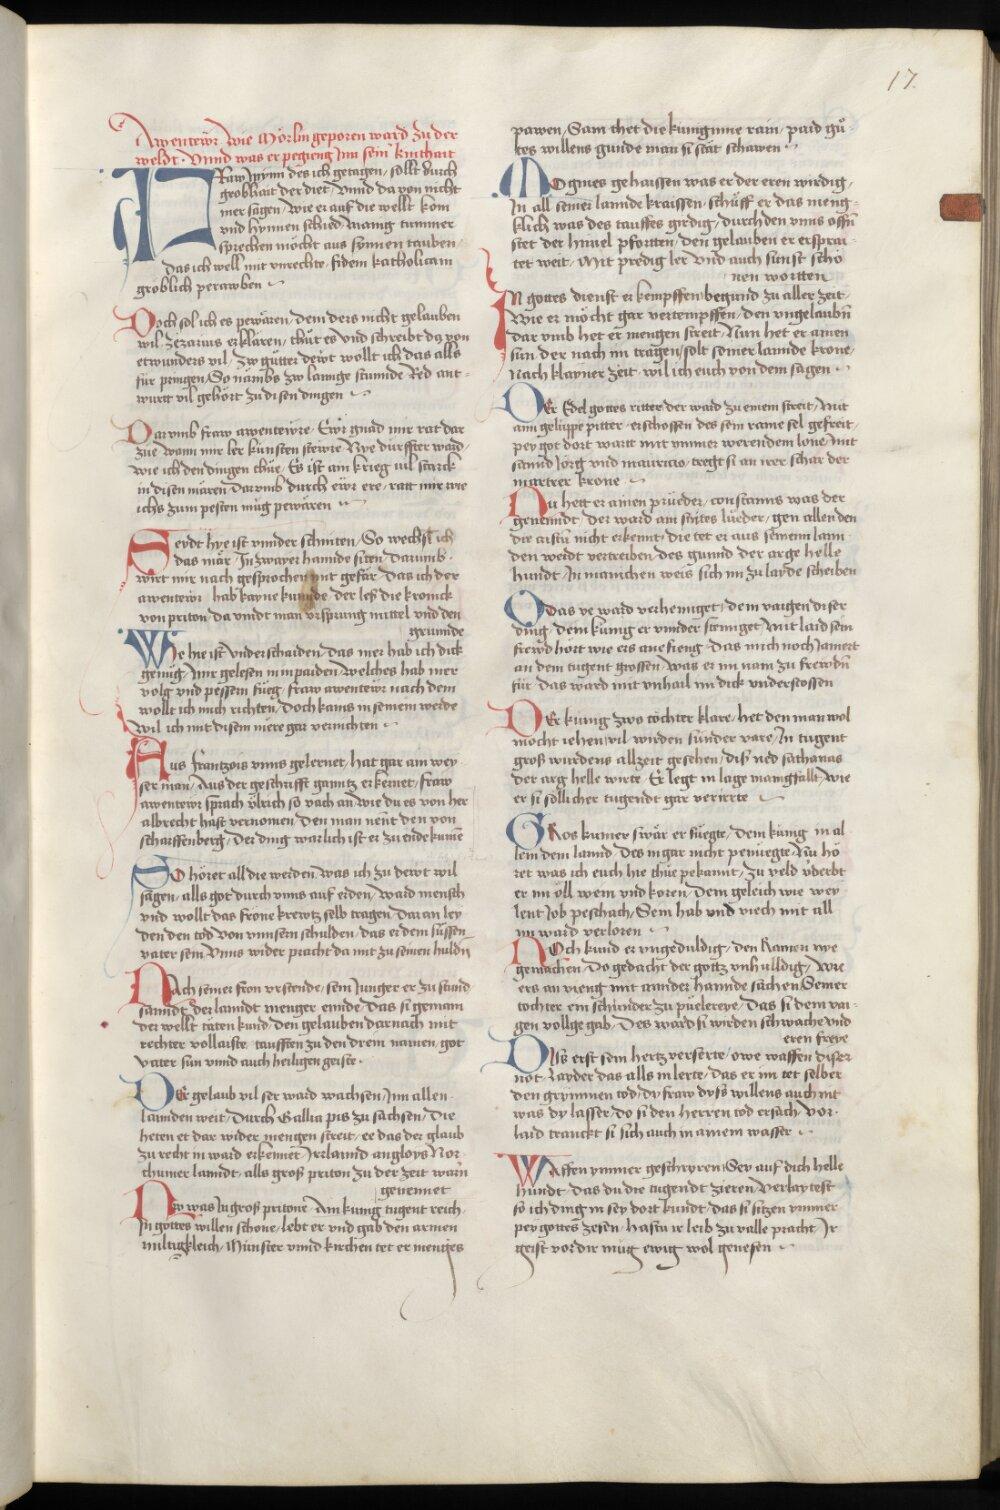 17.
Awentewr wie Mörlin geporen ward zu der
weldt. Vnnd was er pegieng jnn sein kinthait
Fraw Mynn des ich getagen, sollt durch
grobhait der diet, Vnnd da von nicht
mer sagen, Wie er auf die wellt kom
vnd hynnen schied, Manig tummer
sprechen möcht aus synnen tauben,
das ich well mit vnrechte, fidem katholicam
gröblich perawben
Doch sol ich es pewären, dem ders nicht gelauben
wil, Zezarius erklaren, thüt es vnd schreibt da von
etwunders vil, Zw gütter dewt wollt ich das alls
für pringen, So nämbs zw lannge stunnde Red ant-
wurtt vil gehört zu disen dingen
Darvmb fraw awentewre, Ewr gnad mir rat dar
zue, Wann mir ler künsten stewre, Nye dürffter ward,
Wie ich den dingen thue, Es ist am krieg vil starck
in disen mären, Darvmb durch ewr ere, ratt mir wie
ichs zum pesten müg pewären
Seydt hye ist vnnder schniten, So wechslt ich
das mär, In zwayer hannde siten, Darumb
wirt mir nach gesprochen mit gefär, Das ich der
awentewr hab kayne kunnde, der leß die kronick
von priton, da vindt man vrsprung mittel vnd den
grunnde
Wie hie ist vnderschaiden, das mer hab ich dick
genüg, Mir gelesen in in paiden, Welches hab mer
volg vnd pessern füeg, fraw awentewr nach dem
wollt ich mich richten, Doch kains in seinem werde
Wil ich mit disem mere gar vernichten
Aus frantzois vnns gelernet, hat gar ain wey-
ser man, Aus der geschrifft ganntz erkernet, fraw
awentewr sprach Vlrich so vach an, Wie du es von her
albrecht hast vernomen, Den man nent den von
scharffenberg, Der ding warlich ist er zu ende kumen
So höret all die werden, Was ich zu dewt wil
sagen, alls got durch vnns auf erden, Ward mensch
vnd wollt das frone krewtz selb tragen, Dar an ley-
den den tod von vnnsern schulden, das er dem süssen
vater sein, Vnns wider pracht da mit zu seinen huldn
Nach seiner fron vrstende, sein Junger er zu stund
sanndt, der lanndt menger ennde, Das si gemain
der wellt täten kund, den gelauben darnach mit
rechter vollaiste, taufften zu den drein namen, got
vater sun vnnd auch heiligen geiste
Der gelaub vil ser ward wachsen, Inn allen
lannden weit, Durch Gallia pis zu sachsen, Die
heten et dar wider mengen streit, ee das der glaub
zu recht in ward erkennet, Irrlannd angloys Nor-
thumer lanndt, alls groß priton zu der zeit warn
genennet
Nw was Jn groß pritone, Ain kunig tugent reich,
In gottes willen schone, lebt er vnd gab den armen
miltigkleich, Münster vnnd kirchen tet er meniges
pawen, Sam thet die kuniginne rain, paid gü-
tes willens gunde man si stät schawen
Mognies gehaissen was er der eren wirdig,
In all seiner lannde kraissen, schüff er das meng-
klich was des tauffes girdig, durch den vnns offn
stet der himel pfortten, den gelauben er ersprai-
tet weit, Mit predig ler vnd auch sunst schö
nen wortten
In gottes dienst er kempffen, begund zu aller zeit,
Wie er möcht gar vertempffen, den vngelaubn
dar vmb het er mengen streit, Nun het er ainen
sun, der nach im tragen, solt seiner lannde krone,
Nach klayner zeit, wil ich euch von dem sagen
Der Edel gottes ritter, der ward zu einem streit, Mit
aim gelüppe pitter, erschossen des sein raine sel gefreit,
pey got dort wartt mit ymmer werendem lone, Mit
sannd Jörg vnd mauricio, tregt si an irer schar der
martrer krone
Nu hett er ainen prueder, constanns was der
genenndt, Der ward am stiftes lueder, gen allen den
die cristn nicht erkennt, die tet er aus seinem lann-
den weidt vertreiben, des gunnd der arge helle
hundt, In mannichen weis sich im zu layde scheiben
O das ye ward verhennget, dem vaigen diser
ding, dem kunig er vnnder sprenget, Mit laid sein
frewd, hört wie ers ane fieng, Das mich noch Jamert
an dem tugent grossen, Was er im nam zu frewdn
für, das ward mit vnhail im dick vnderstossen
Der kunig zwo töchter klare, het den man wol
mocht iehen, vil wirden sunder vare, In tugent
groß wurdens allzeit gesehen, diß ned sathanas
der arg helle wirte, Er legt in lage manigfallt, Wie
er si söllicher tugendt gar verirrte
Gros kumer swär er füegte, Dem künig in al-
lem dem lannd, Des in gar nicht penüegte, Nu hö-
ret was ich euch hie thüe pekannt, Zu veld vderbt
er im öll wein vnd koren, Dem geleich wie wey-
lent Job peschach, Sein hab vnd viech mit all
im ward verloren
Noch kund er vngeduldig, den Ramen nye
gemachen, Do gedacht der gottz vnhulldig, Wie
ers an vieng mit annder hannde sachen, Seiner
tochter ein schunder zu püelereye, Das si dem vai-
gen vollge gab, Des ward si wirden schwache vnd
eren freye
Diß erst sein hertz verserte, owe waffen diser
not, Layder das alls in lerte, das er im tet selber
den grymmen tod, dy fraw dyss willens auch mit
was dy lasser, do si den herren tod ersach, Vor
laid tranckt si sich auch in ainem wasser
Waffen ymmer geschryren, Sey auf dich helle
hundt, das du die tugendt zieren, Verlaytest
so ich ding in sey dort kundt, das si sitzen ymmer
pey gottes zesen, hastu ir leib zu valle pracht, Ir
geist vor dir müg ewig wol genesen